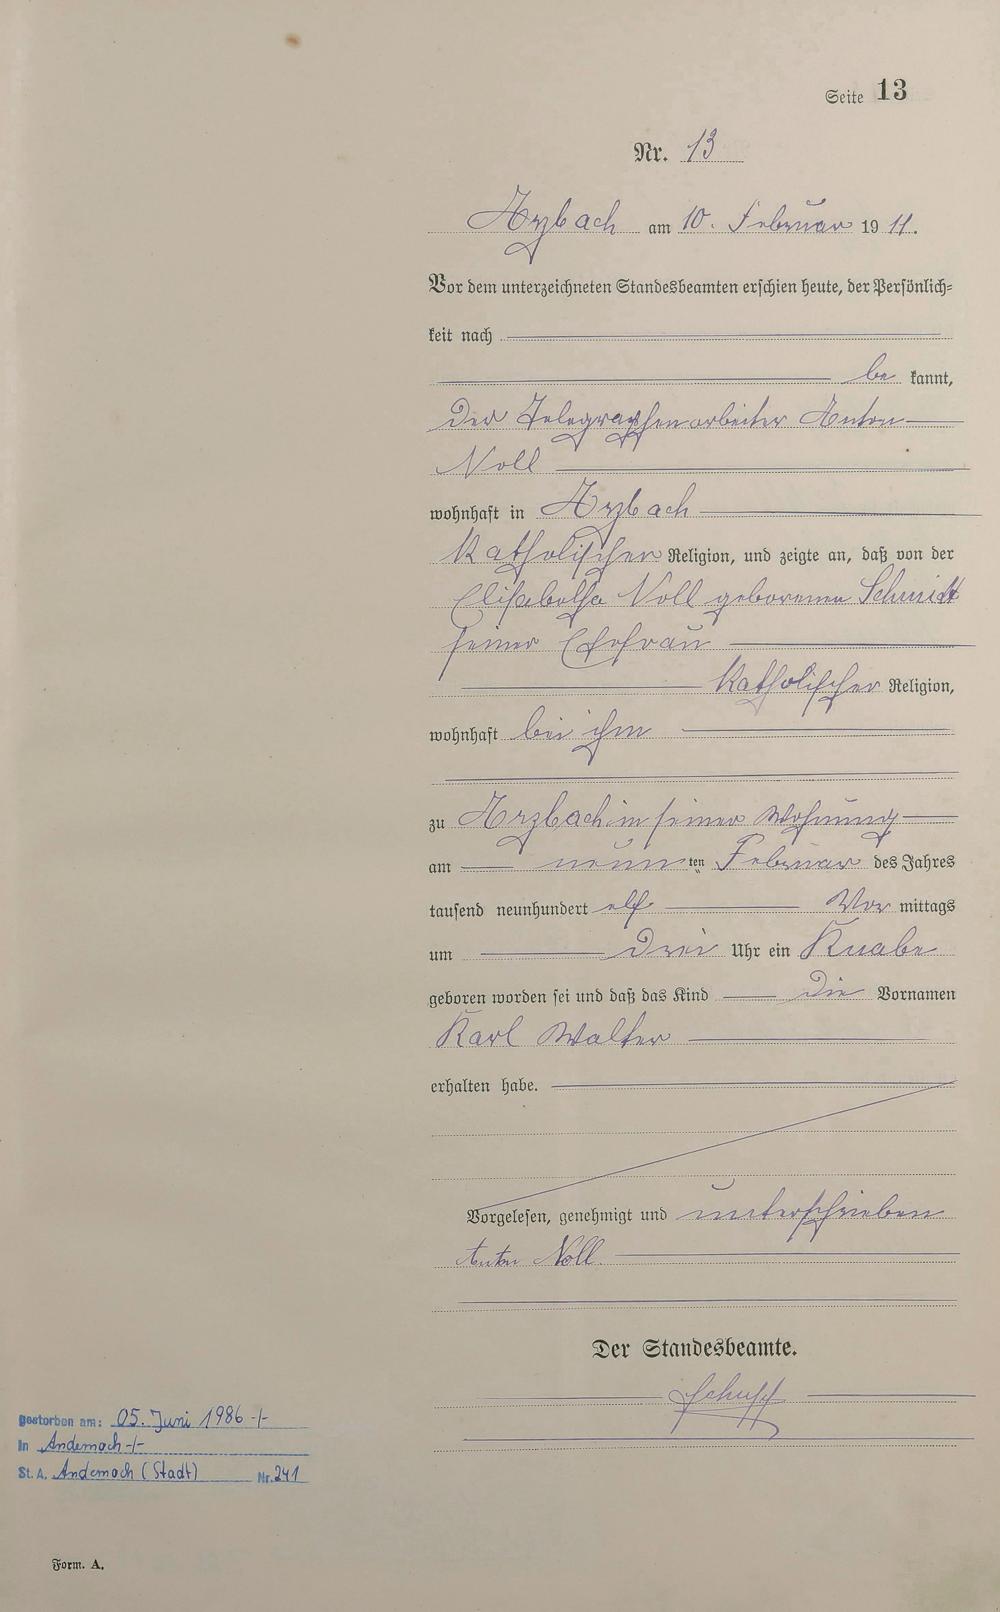 Seite 13
Nr. 13
Arzbach am 10. Februar 19 11.
Vor dem unterzeichneten Standesbeamten erschien heute, der Persönlich-
keit nach
be kannt,
der Telegraphenarbeiter Anton
Noll
wohnhaft in Arzbach
katholischer Religion, und zeigte an, daß von der
Elisabetha Noll geborenen Schmidt
seiner Ehefrau
katholischer Religion,
wohnhaft bei ihm
zu Arzbach in seiner Wohnung
am neun ten Februar des Jahres
tausend neunhundert elf Vor mittags
um drei Uhr ein Knabe
geboren worden sei und daß das Kind die Vornamen
Karl Walter
erhalten habe.
Vorgelesen, genehmigt und unterschrieben
Anton Noll
Der Standesbeamte.
gestorben am: 05. Juni 1986 -/-
in Andernach -/-
St. A. Andernach (Stadt) Nr. 241
Form. A.